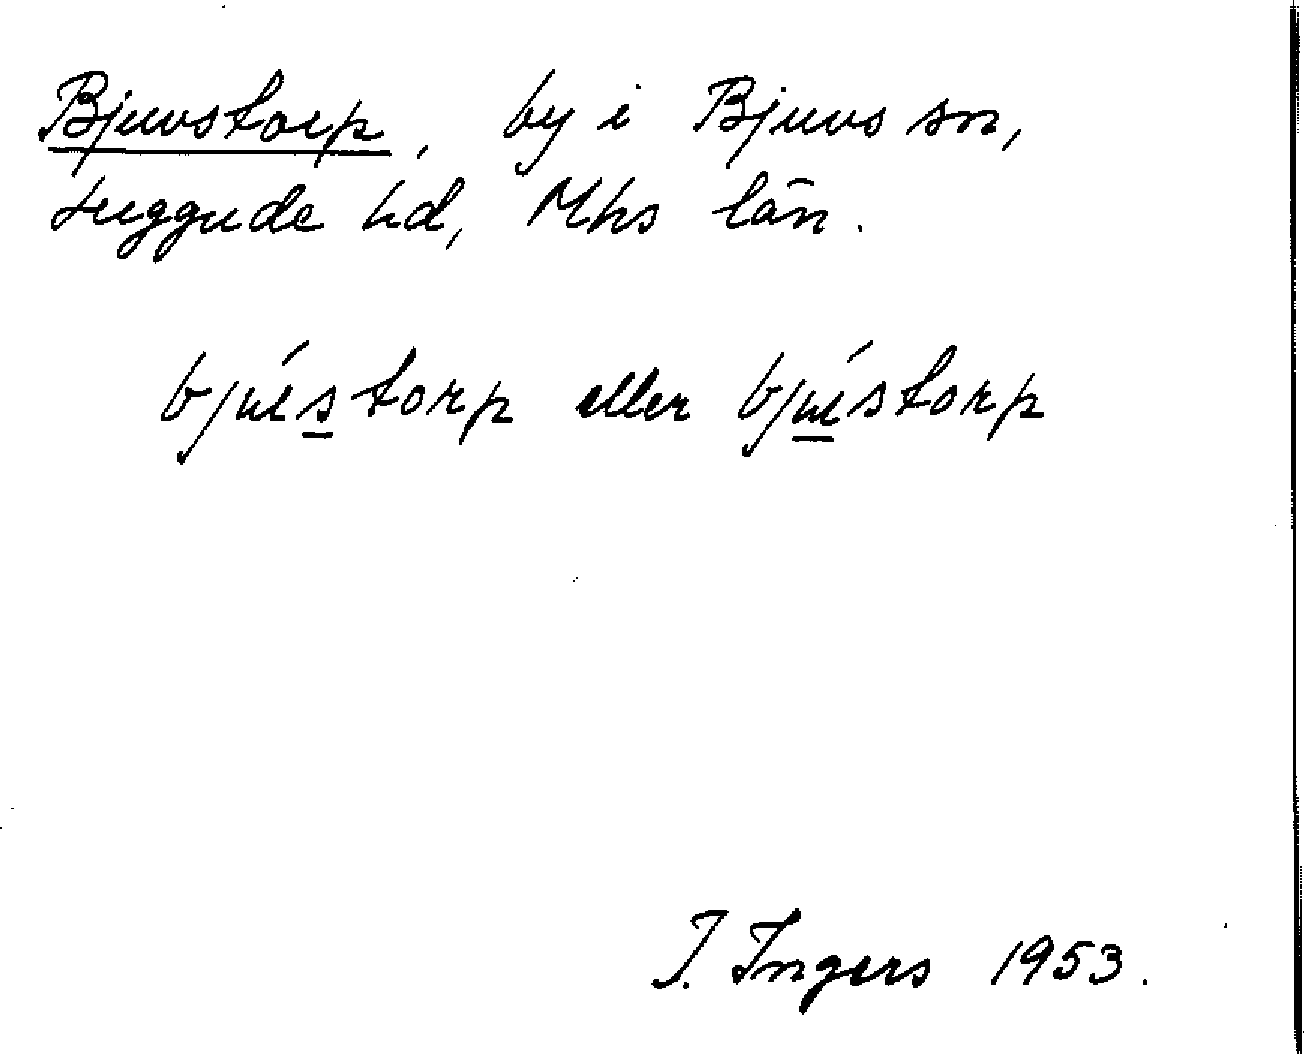 Bjuvstorp, by i Bjuvs sn,
Luggude hd, Mhs län.
bjústorp eller bjústorp
I. Ingers 1953.